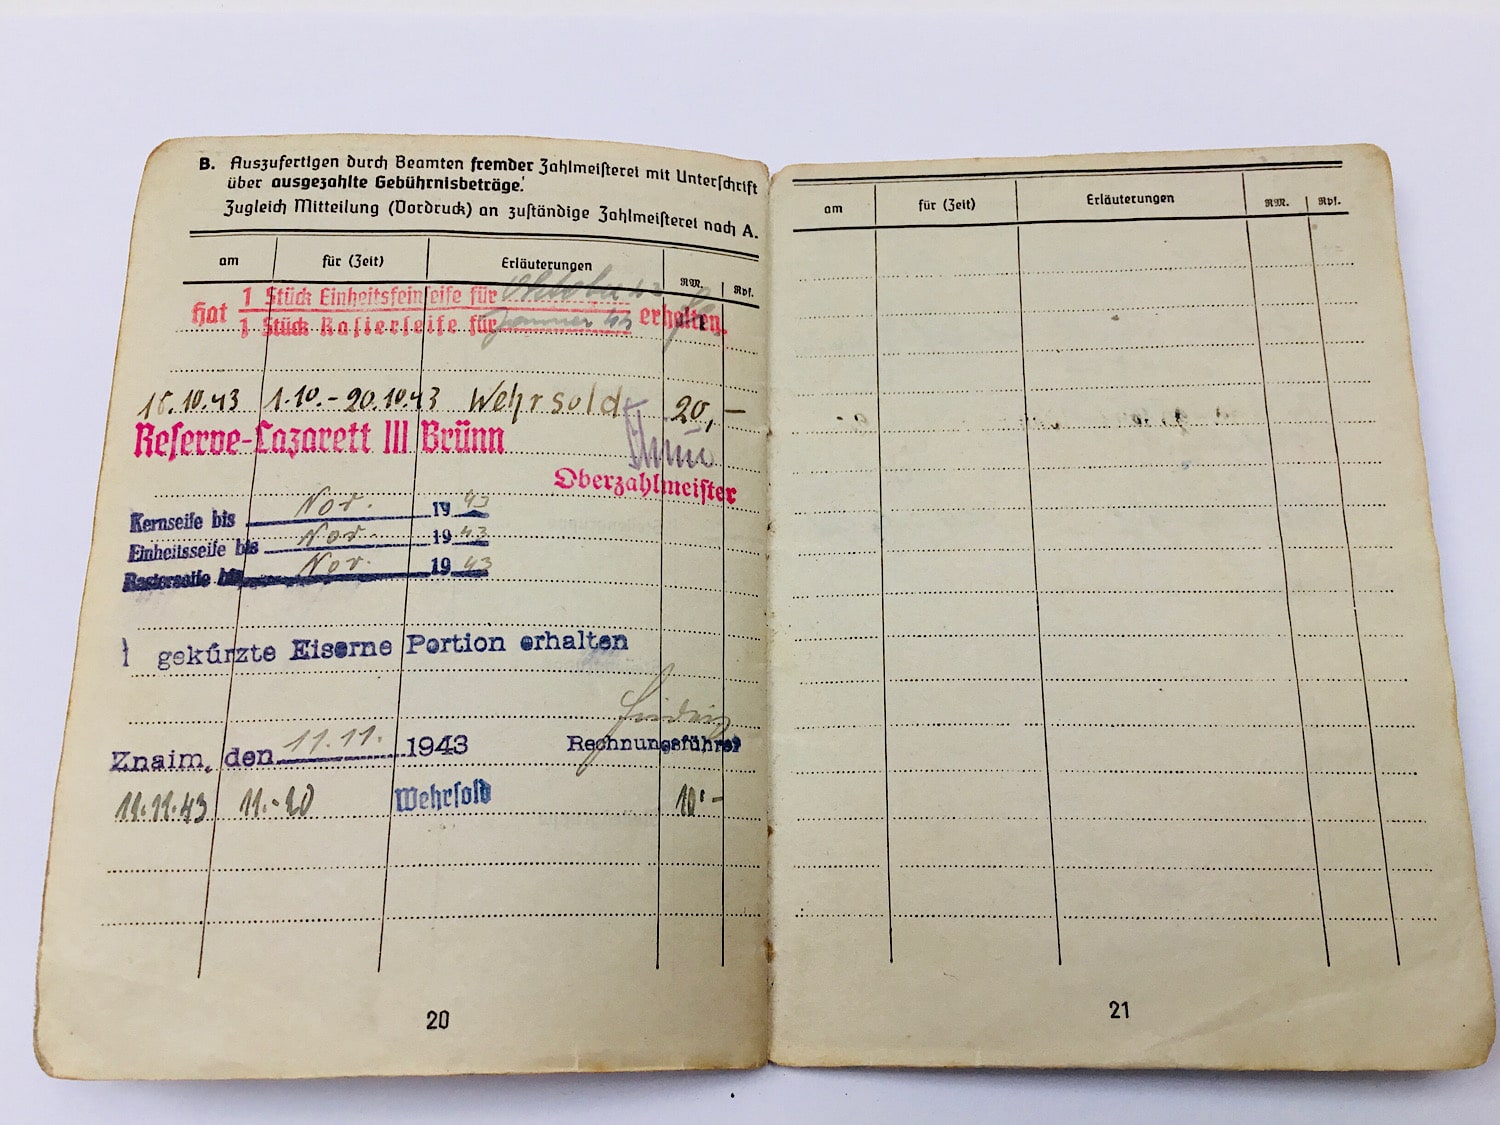 B. Auszufertigen durch Beamten fremder Zahlmeisterei mit Unterschrift
über ausgezahlte Gebührnisbeträge.
Zugleich Mitteilung (Vordruck) an zuständige Zahlmeisterei nach A.
am für (Zeit) Erläuterungen RM. Rpf.
Hat 1 Stück Einheitsfeinseife für Oktober 43
1 Stück Rasierseife für 43 erhalten.
18.10.43 1.10.-20.10.43 Wehrsold 20,-
Reserve-Lazarett III Brünn
Oberzahlmeister
Kernseife bis Nov. 1943
Einheitsseife bis Nov. 1943
Rasierseife bis Nov. 1943
1 gekürzte Eiserne Portion erhalten
Znaim, den 11.11. 1943 Rechnungsführer
11.11.43 11.-20 Wehrsold 10,-
20
am für (Zeit) Erläuterungen RM. Rpf.
21